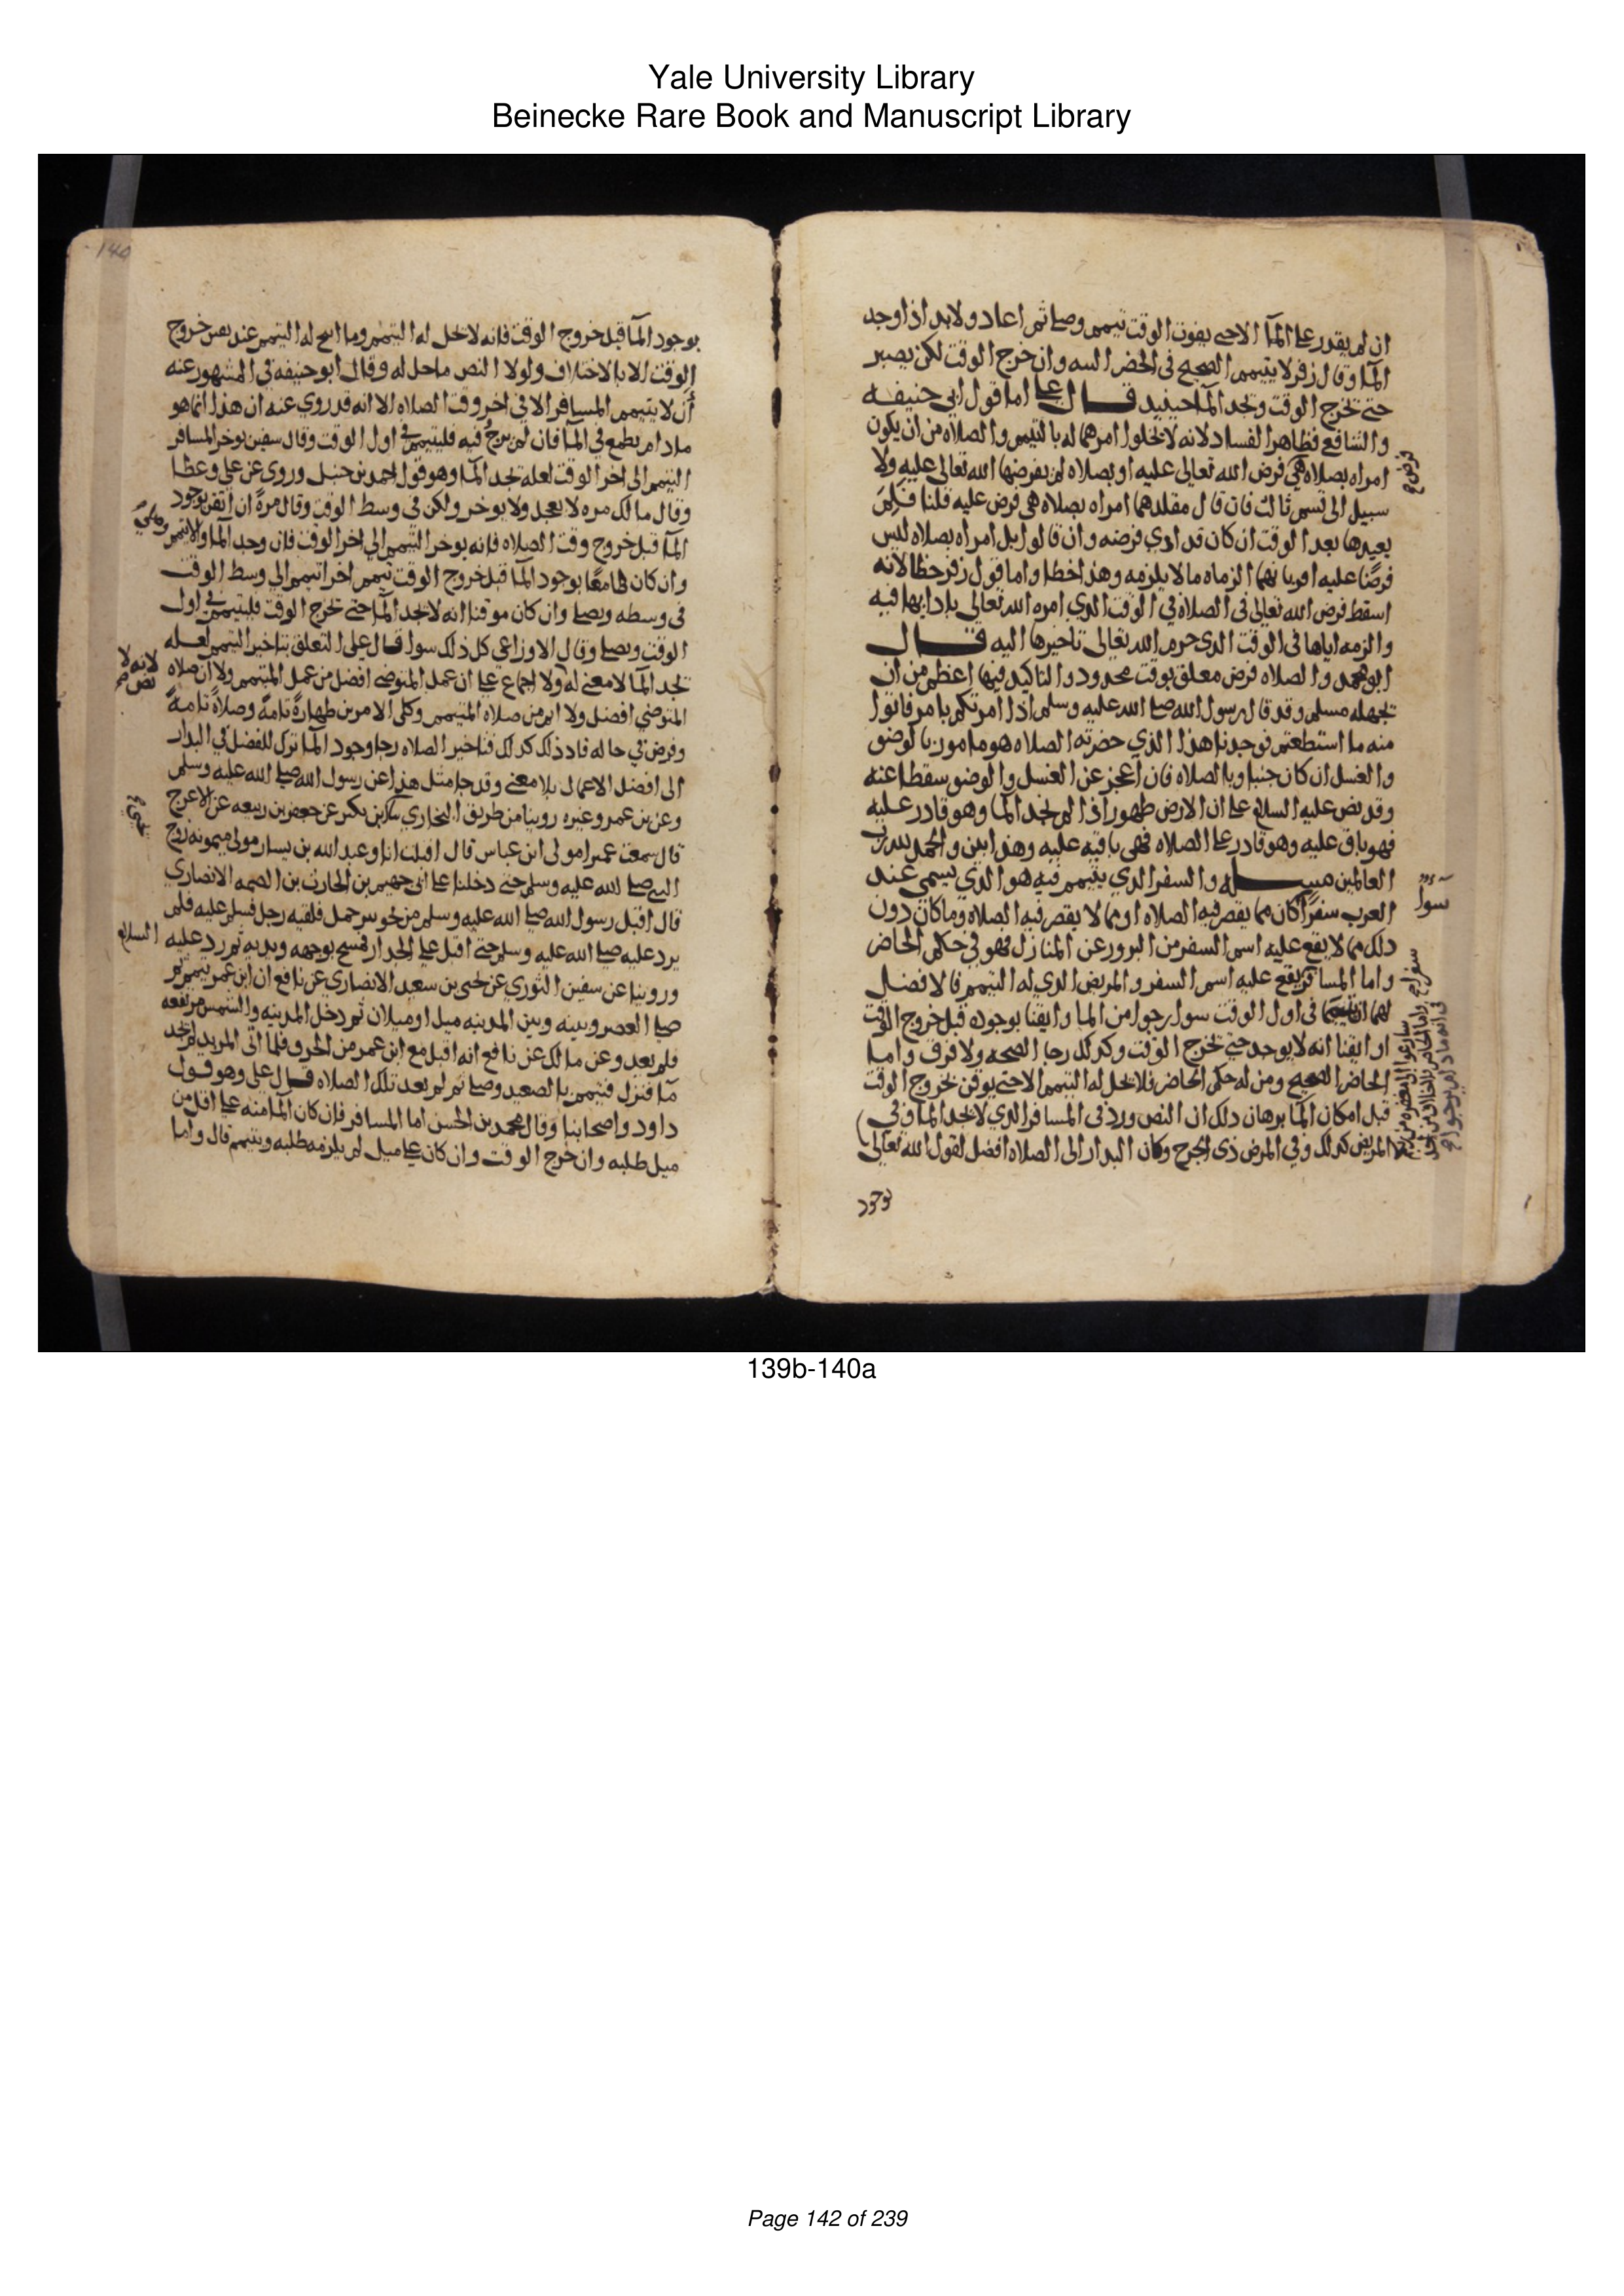 Yale University Library
Beinecke Rare Book and Manuscript Library
ان لم يقدر علي المآ الا حتي يفوت الوقت تيمم وصلي ثم اعاد ولا بد اذا وجد
المآ وقال زفر لا يتيمم الصحيح في الحضر البته وان خرج الوقت لكن يصبر
حتي يخرج الوقت ويجد المآ حينيد قال علي اما قول ابي حنيفه
والشافعي فظاهر الفساد لانه لا يخلوا امرهما له بالتيمم والصلاه من ان يكون
امراه بصلاه هي فرض الله تعالي عليه او بصلاه لم يفرضها الله تعالي عليه ولا
سبيل الي قسم ثالث فان قال مقلدهما امراه بصلاه هي فرض عليه قلنا فلم
يعيدها بعد الوقت ان كان قد ادي فرضه وان قالوا بل امراه بصلاه ليس
فرضا عليه اقروا بانهما الزماه ما لا يلزمه وهذا خطا واما قول زفر خطا لانه
اسقط فرض الله تعالي في الصلاه في الوقت الذي امره الله تعالي بادايها فيه
والزمه اياها في الوقت الذي حرم الله تعالي تاخيرها اليه قال
ابو محمد والصلاه فرض معلق بوقت محدود والتاكيد فيها اعظم من ان
يجهله مسلم وقد قال رسول الله صلي الله عليه وسلم اذا امرتكم بامر فاتوا
منه ما استطعتم فوجدنا هذا الذي حضرته الصلاه هو مامور بالوضو
والغسل ان كان جنبا وبالصلاه فان اعجز عن الغسل والوضو سقطا عنه
وقد نص عليه السلام علي ان الارض طهور اذا لم يجد المآ وهو قادر عليه
فهو باق عليه وهو قادر علي الصلاه فهي باقيه عليه وهذا بين والحمد لله رب
العالمين مسله والسفر الذي يتيمم فيه هو الذي يسمي عند
العرب سفرا كان مما يقصر فيه الصلاه او مما لا يقصر فيه الصلاه وما كان دون
سوآ
ذلك مما لا يقع عليه اسم السفر من البروز عن المنازل فهو في حكم الحاضر
واما المسافر يقع عليه اسم السفر والمريض الذي له التيمم فالافضل
لهما في اول الوقت سوا رجوا من المآ وايقنا بوجوده قبل خروج الوقت
او ايقنا انه لا يوجد حتي يخرج الوقت وكذلك رجا الصحه ولا فرق واما
الحاضر الصحيح ومن له حكم الحاضر فلا يحل له التيمم الا حتي يوقن بخروج الوقت
قبل امكان المآ برهان ذلك ان النص ورد في المسافر الذي لا يجد المآ وفي
المريض كذلك وفي المرض ذي الجرح وكان البدار الي الصلاه افضل لقول الله تعالي
بوجود المآ قبل خروج الوقت فانه لا يحل له التيمم وما ابيح له التيمم عند يقين خروج
الوقت الا بالاختلاف ولولا النص ما حل له وقال ابو حنيفه في المشهور عنه
ان لا يتيمم المسافر الا في اخر وقت الصلاه الا انه قد روي عنه ان هذا انما هو
مادام يطمع في المآ فان لم يرج فيه فليتيمم في اول الوقت وقال سفين يوخر المسافر
التيمم الي اخر الوقت لعله يجد المآ وهو قول احمد بن حنبل وروي عن علي وعطا
وقال مالك مره لا يعجل ولا يوخر ولكن في وسط الوقت وقال مرة ان ايقن بوجود
المآ قبل خروج وقت الصلاه فانه يوخر التيمم الي اخر الوقت فان وجد المآ والا تيمم وصلي
وان كان طامعا بوجود المآ قبل خروج الوقت تيمم اخر اتيمم الي وسط الوقت
في وسطه ويصلي وان كان موقنا انه لا يجد المآ حتي يخرج الوقت فليتيمم في اول
الوقت ويصلي وقال الاوزاعي كل ذلك سوا قال علي التعلق بتاخير التيمم لعله
يجد المآ لا معني له ولا اجماع علي ان عمل المتوضي افضل من عمل المتيمم ولا ان صلاه
لانه لا نص
المتوضي افضل ولا اتم من صلاه المتيمم وكلي الامرين طهارة تامة وصلاة تامة
وفرض في حاله فاذ ذلك كذلك فتاخير الصلاه رجا وجود المآ ترك للفضل في البدار
الي افضل الاعمال بلا معني وقد جا مثل هذا عن رسول الله صلي الله عليه وسلم
وعن بن عمر وغيره روينا من طريق البخاري بن بكير عن جعفر بن ربيعه عن الاعرج
قال سمعت عميرا مولي ابن عباس قال اقبلت انا وعبد الله بن يسار مولي ميمونه زوج
النبي صلي الله عليه وسلم حتي دخلنا علي ابي جهيم بن الحارث بن الصمه الانصاري
قال اقبل رسول الله صلي الله عليه وسلم من نحو بير جمل فلقيه رجل فسلم عليه فلم
يرد عليه صلي الله عليه وسلم حتي اقبل علي الجدار فمسح بوجهه ويديه ثم رد عليه السلام
وروينا عن سفين الثوري عن يحيي بن سعيد الانصاري عن نافع ان ابن عمر تيمم ثم
صلي العصر وبينه وبين المدينه ميل او ميلان ثم دخل المدينه والشمس مرتفعه
فلم يعد وعن مالك عن نافع انه اقبل مع ابن عمر من الجرف فلما اتي المربد لم يجد
مآ فنزل فتيمم بالصعيد وصلي ثم لم يعد تلك الصلاه قال علي وهو قول
داود واصحابنا وقال محمد بن الحسن اما المسافر فان كان المآ منه علي اقل من
ميل طلبه وان خرج الوقت وان كان علي ميل لم يلزمه طلبه ويتيمم قال واما
140
139b-140a
Page 142 of 239